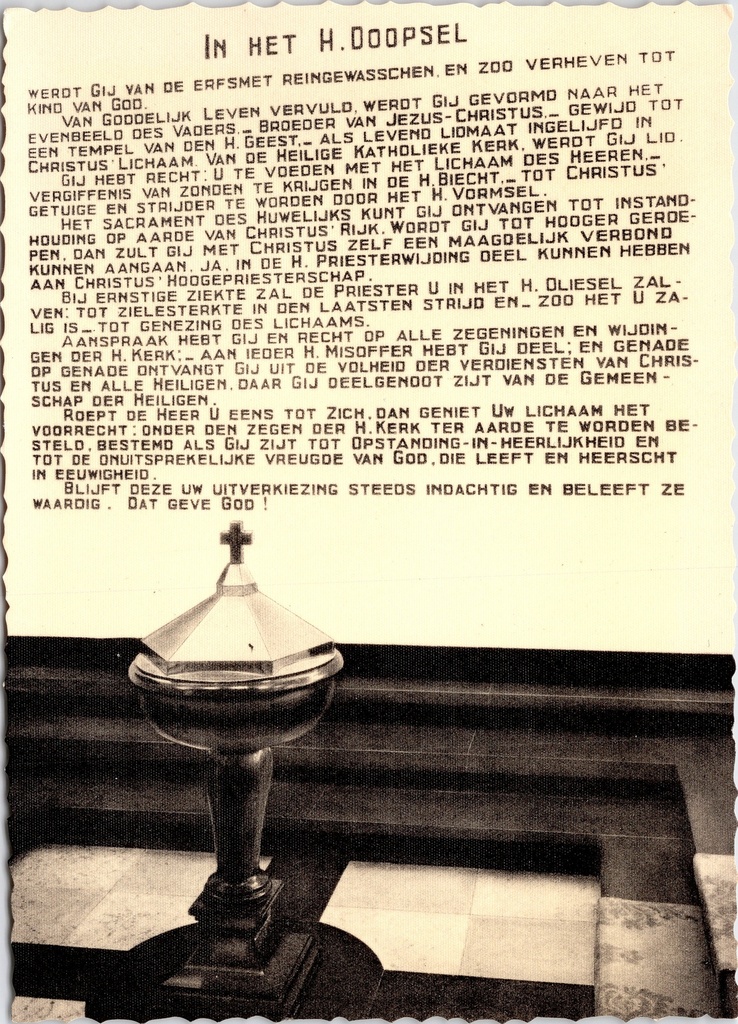 IN HET H. DOOPSEL
WERDT GIJ VAN DE ERFSMET REINGEWASSCHEN, EN ZOO VERHEVEN TOT
KIND VAN GOD.
VAN GODDELIJK LEVEN VERVULD, WERDT GIJ GEVORMD NAAR HET
EVENBEELD DES VADERS._ BROEDER VAN JEZUS-CHRISTUS,_ GEWIJD TOT
EEN TEMPEL VAN DEN H. GEEST,_ ALS LEVEND LIDMAAT INGELIJFD IN
CHRISTUS' LICHAAM. VAN DE HEILIGE KATHOLIEKE KERK, WERDT GIJ LID.
GIJ HEBT RECHT: U TE VOEDEN MET HET LICHAAM DES HEEREN,_
VERGIFFENIS VAN ZONDEN TE KRIJGEN IN DE H. BIECHT,_ TOT CHRISTUS'
GETUIGE EN STRIJDER TE WORDEN DOOR HET H. VORMSEL.
HET SACRAMENT DES HUWELIJKS KUNT GIJ ONTVANGEN TOT INSTAND-
HOUDING OP AARDE VAN CHRISTUS' RIJK. WORDT GIJ TOT HOOGER GEROE-
PEN, DAN ZULT GIJ MET CHRISTUS ZELF EEN MAAGDELIJK VERBOND
KUNNEN AANGAAN, JA, IN DE H. PRIESTERWIJDING DEEL KUNNEN HEBBEN
AAN CHRISTUS' HOOGEPRIESTERSCHAP.
BIJ ERNSTIGE ZIEKTE ZAL DE PRIESTER U IN HET H. OLIESEL ZAL-
VEN: TOT ZIELESTERKTE IN DEN LAATSTEN STRIJD EN_ ZOO HET U ZA-
LIG IS_ TOT GENEZING DES LICHAAMS.
AANSPRAAK HEBT GIJ EN RECHT OP ALLE ZEGENINGEN EN WIJDIN-
GEN DER H. KERK:_ AAN IEDER H. MISOFFER HEBT GIJ DEEL; EN GENADE
OP GENADE ONTVANGT GIJ UIT DE VOLHEID DER VERDIENSTEN VAN CHRIS-
TUS EN ALLE HEILIGEN, DAAR GIJ DEELGENOOT ZIJT VAN DE GEMEEN-
SCHAP DER HEILIGEN.
ROEPT DE HEER U EENS TOT ZICH, DAN GENIET UW LICHAAM HET
VOORRECHT: ONDER DEN ZEGEN DER H. KERK TER AARDE TE WORDEN BE-
STELD, BESTEMD ALS GIJ ZIJT TOT OPSTANDING-IN-HEERLIJKHEID EN
TOT DE ONUITSPREKELIJKE VREUGDE VAN GOD, DIE LEEFT EN HEERSCHT
IN EEUWIGHEID.
BLIJFT DEZE UW UITVERKIEZING STEEDS INDACHTIG EN BELEEFT ZE
WAARDIG. DAT GEVE GOD!